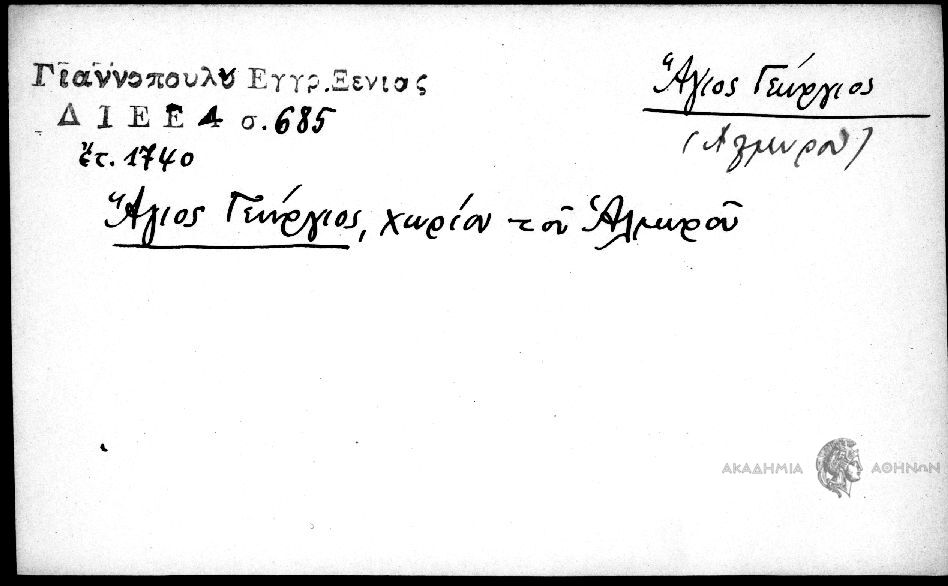 Γιαννοπουλυ Εγγρ. Ξενιας
ΔΙΕΕ 4 σ. 685
ἔτ. 1740
Ἅγιος Γεώργιος
(Ἁλμυροῦ)
Ἅγιος Γεώργιος, χωρίον τοῦ Ἁλμυροῦ
ΑΚΑΔΗΜΙΑ ΑΘΗΝΩΝ